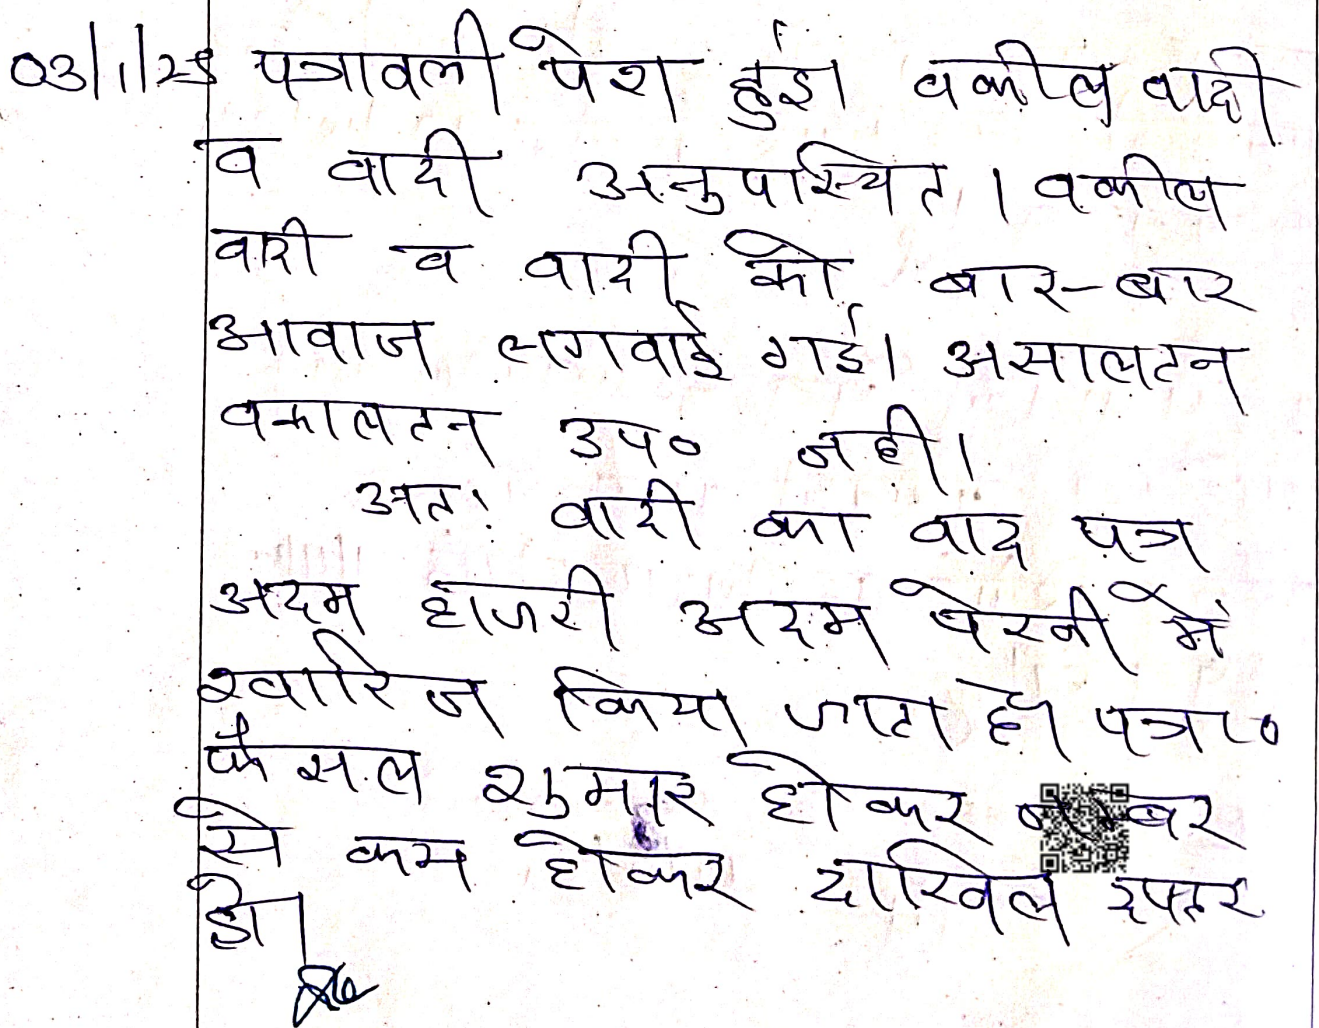 03/1/25 पत्रावली पेश हुई। वकील वादी
व वादी अनुपस्थित। वकील
वादी व वादी को बार-बार
आवाज लगवाई गई। असालटन
वकालटन उप० नही।
अतः वादी का वाद पत्र
अदम हाजरी अदम पेरवी में
खारिज किया जाता है। पत्रा०
फैसल शुमार होकर नम्बर
से कम होकर दाखिल दफ्तर
हो।